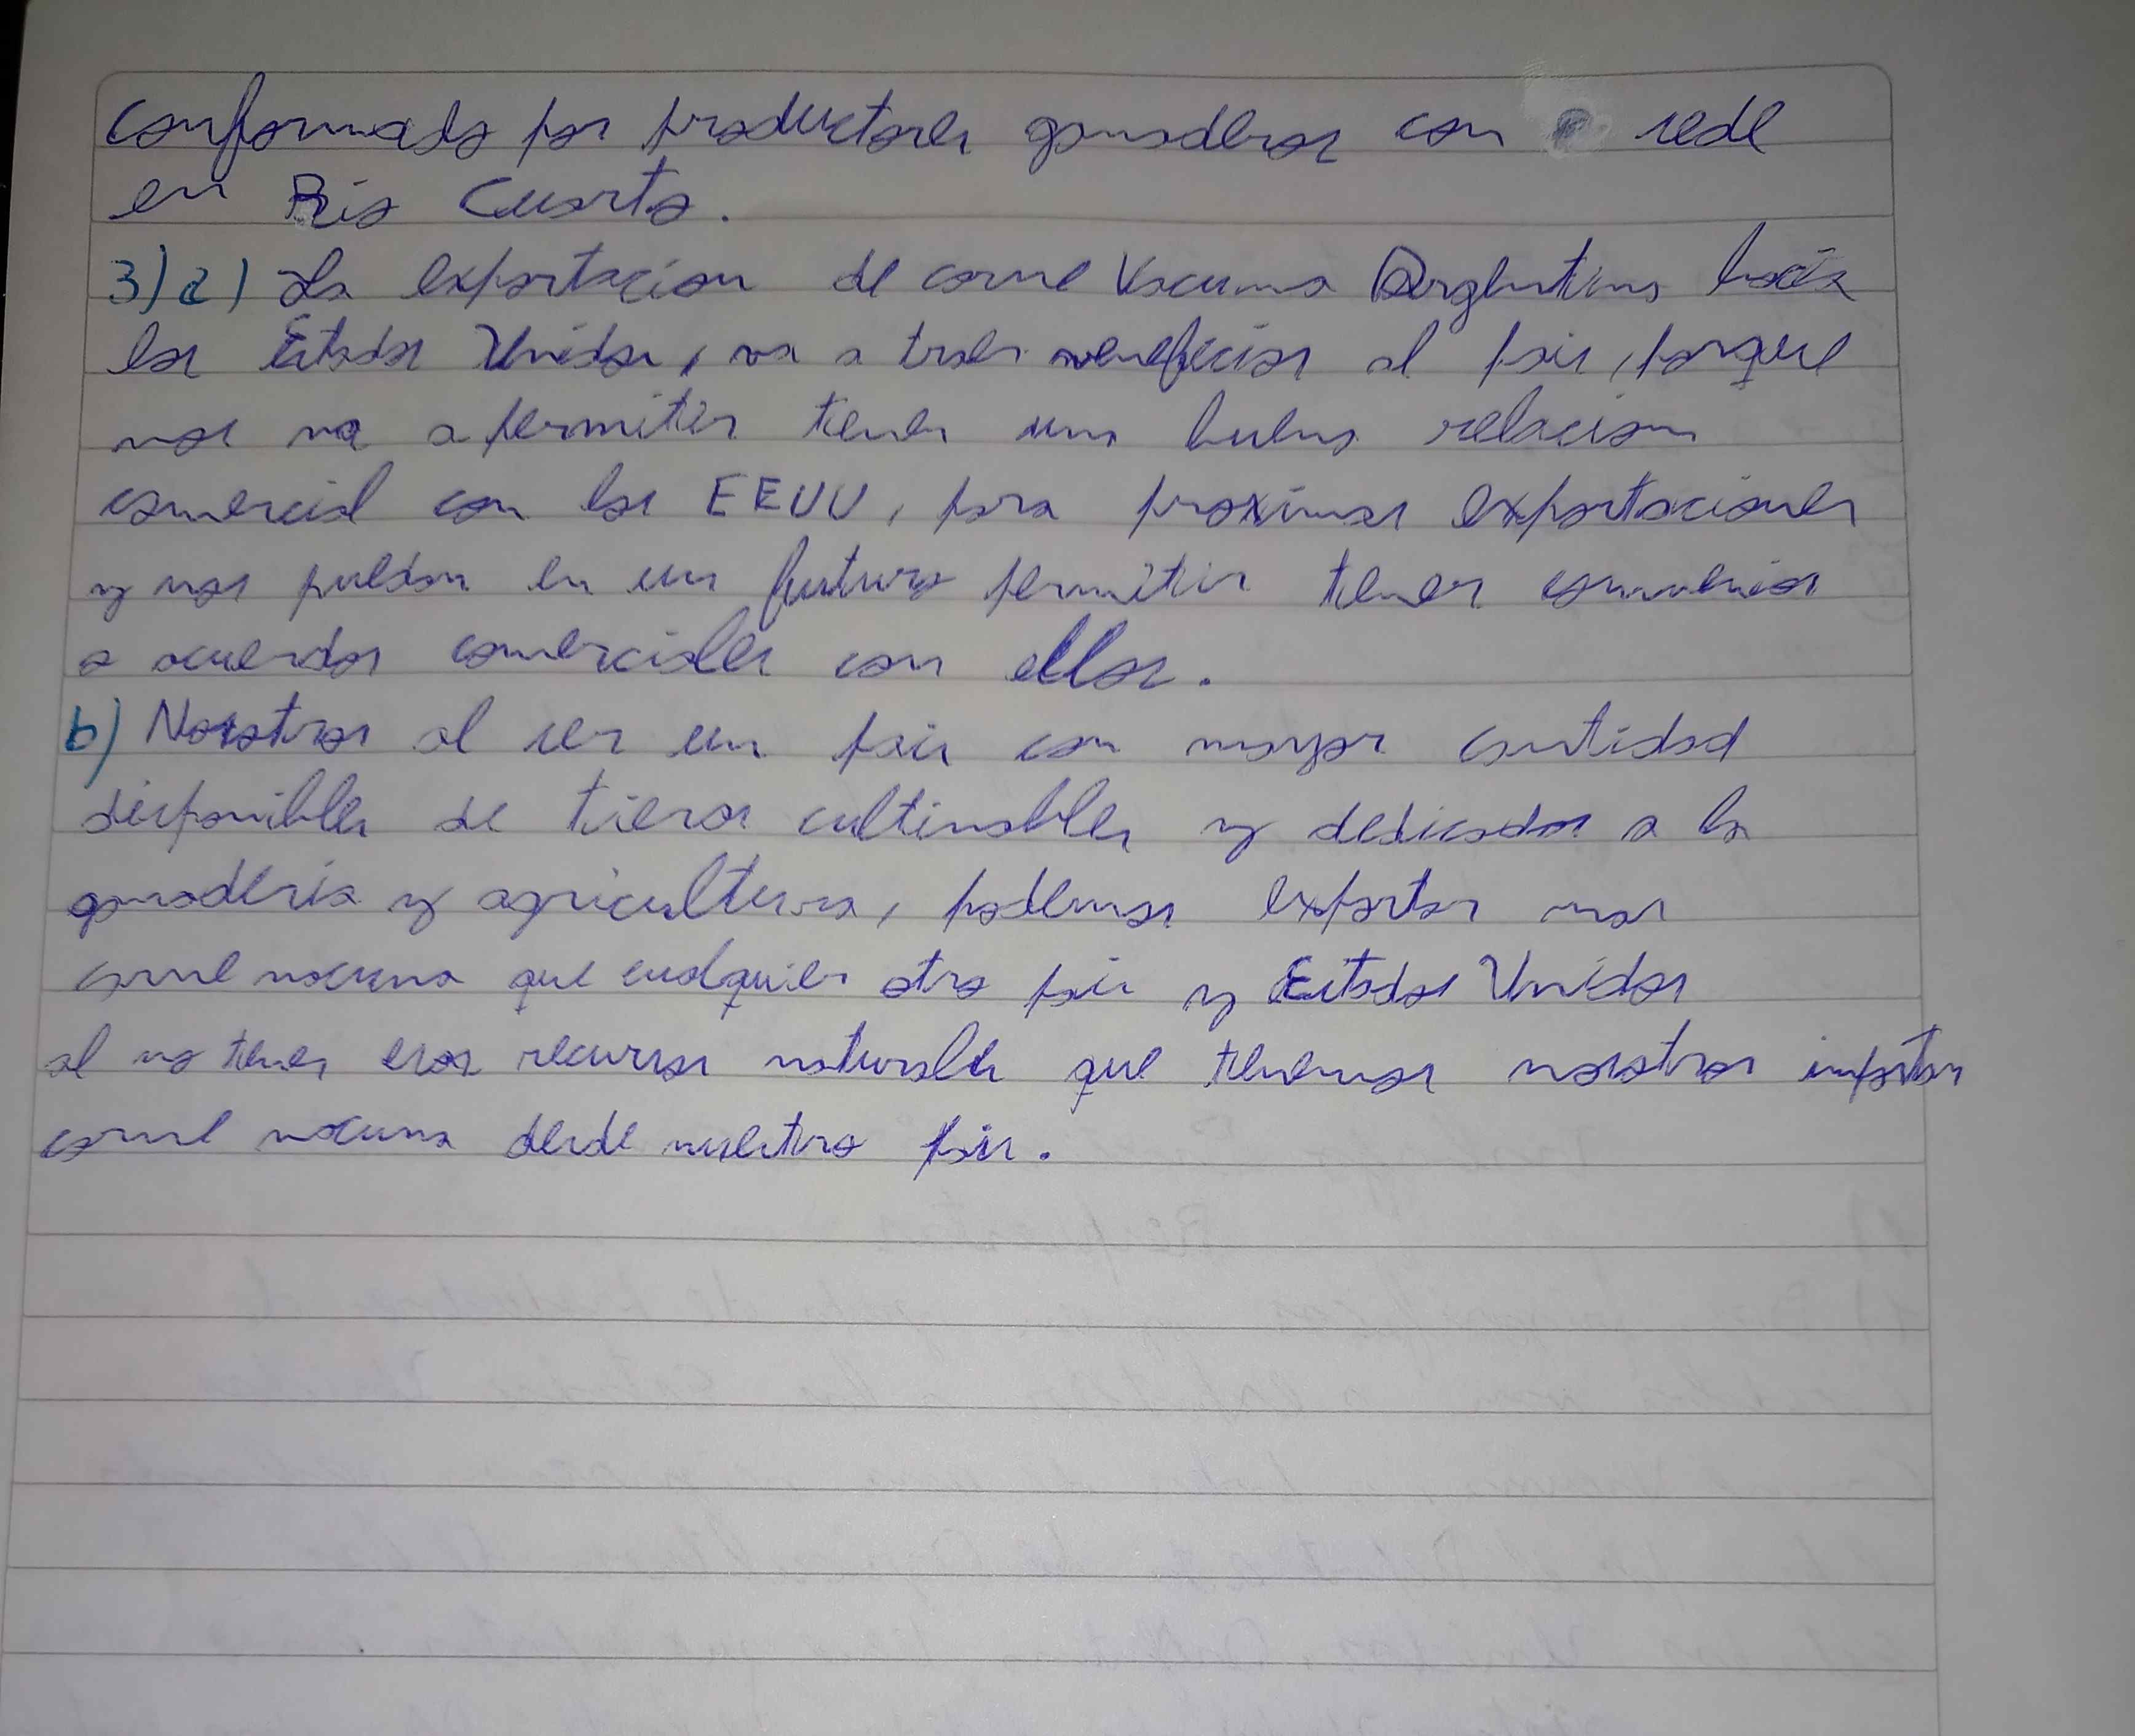 conformado por productores ganaderos con sede
en Río Cuarto.
3) a) La exportacion de carne Vacuna Argentina hacia
los Estados Unidos, va a traer veneficios al pais, porque
nos va a permitir tener una buena relacion
comercial con los EEUU, para proximas exportaciones
y nos puedan en un futuro permitir tener convenios
o acuerdos comerciales con ellos.
b) Nosotros al ser un pais con mayor cantidad
disponibles de tieras cultivables y dedicadas a la
ganaderia y agricultura, podemos exportar mas
carne vacuna que cualquier otro pais y Estados Unidos
al no tener esos recursos naturales que tenemos nosotros importan
carne vacuna desde nuestro pais.